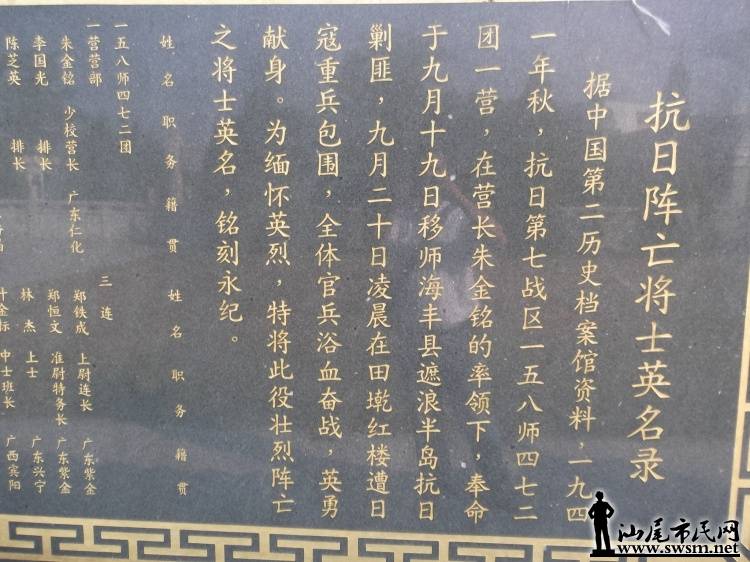 抗日阵亡将士英名录
据中国第二历史档案馆资料，一九四
一年秋，抗日第七战区一五八师四七二
团一营，在营长朱金铭的率领下，奉命
于九月十九日移师海丰县遮浪半岛抗日
剿匪，九月二十日凌晨在田墘红楼遭日
寇重兵包围，全体官兵浴血奋战，英勇
献身。为缅怀英烈，特将此役壮烈阵亡
之将士英名，铭刻永纪。
姓名职务籍贯 姓名职务籍贯
一五八师四七二团
一营营部 三连
朱金铭 少校营长 广东仁化 郑铁成 上尉连长 广东紫金
李国光 排长 郑恒文 准尉特务长 广东紫金
陈芝英 排长 林杰 上士 广东兴宁
叶金标 中士班长 广西宾阳
汕尾市民网
www.swsm.net